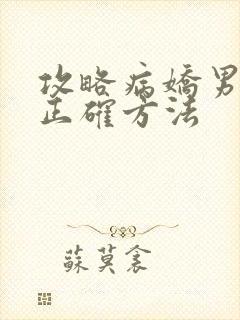 攻略病嬌男
正確方法
蘇莫衾